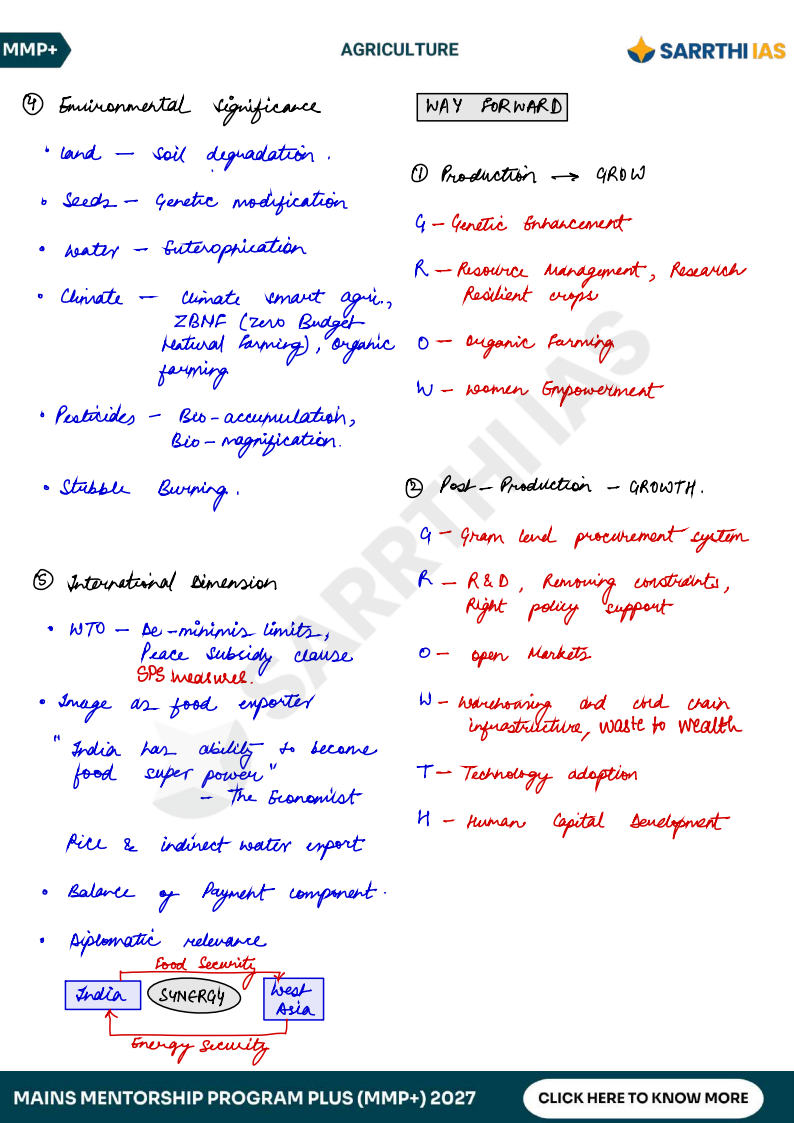 MMP+
AGRICULTURE
SARRTHI IAS
④ Environmental significance
• Land — Soil degradation.
• Seeds — Genetic modification
• Water — Euterophication
• Climate — Climate smart agri.,
ZBNF (Zero Budget
Natural Farming), organic
farming
• Pesticides — Bio-accumulation,
Bio-magnification.
• Stubble Burning.
⑤ International Dimension
• WTO — De-minimis limits,
Peace subsidy clause
SPS measures.
• Image as food exporter
"India has ability to become
food super power"
— The Economist
Rice & indirect water export
• Balance of Payment component.
• Diplomatic relevance
Food Security
India
SYNERGY
West
Asia
Energy Security
WAY FORWARD
① Production → GROW
G — Genetic Enhancement
R — Resource Management, Research
Resilient crops
O — Organic Farming
W — Women Empowerment
② Post-Production — GROWTH.
G — Gram level procurement system
R — R&D, Removing constraints,
Right policy support
O — open Markets
W — Warehousing and cold chain
infrastructure, waste to wealth
T — Technology adoption
H — Human Capital Development
SARRTHI IAS
MAINS MENTORSHIP PROGRAM PLUS (MMP+) 2027
CLICK HERE TO KNOW MORE